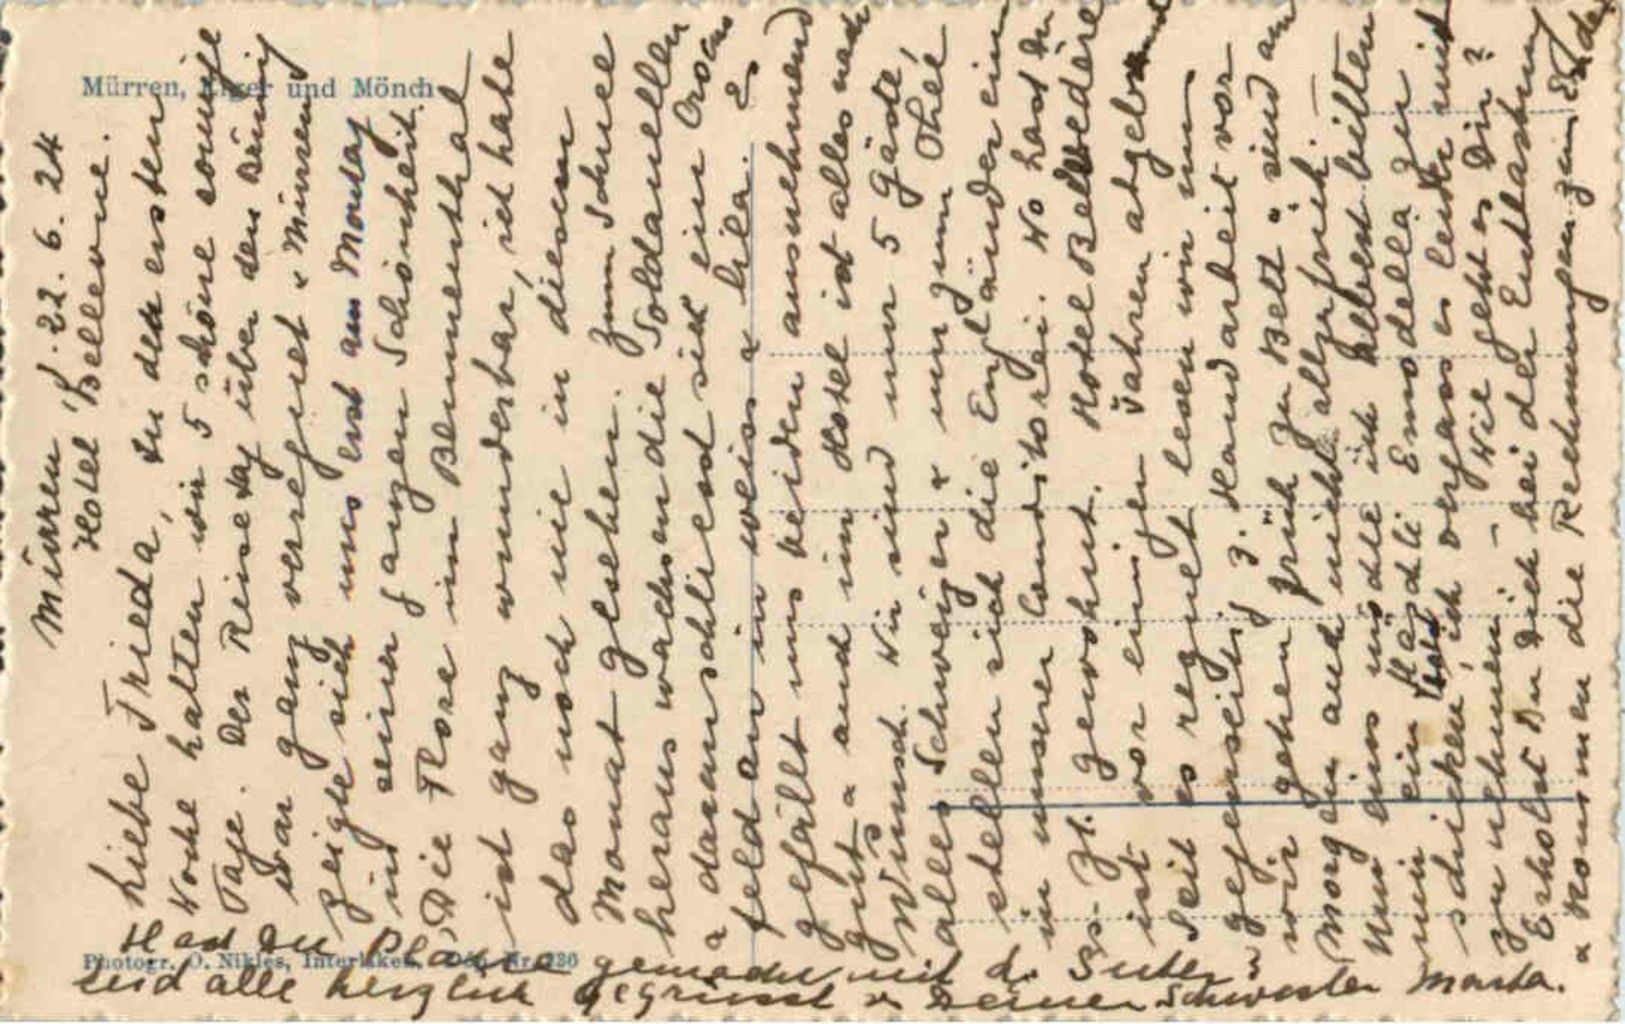 Mürren, Eiger und Mönch
Mürren, 22. 6. 24
Hotel Bellevue.
Liebe Frieda, In der ersten
Woche hatten wir 5 schöne sonnige
Tage. Der Reisetag über den Brünig
war ganz verregnet & Mürren
zeigte sich uns erst am Montag
in seiner ganzen Schönheit.
Die Flora im Blumenthal
ist ganz wunderbar, ich habe
das noch nie in diesem
Monat gesehen. Zum Schnee
heraus wachsen die Soldanellen
& daran schliesst sich ein Crocus
feld an in weiss & lila. Es
gefällt uns beiden ausnehmend
gut & auch im Hotel ist alles nach
Wunsch. Wir sind nur 5 Gäste,
alles Schweizer & nur zum Thee
stellen sich die Engländer ein
in unserer Conditorei. Wo hast Du
s. Zt. gewohnt. Hotel Belvedère
ist vor einigen Jahren abgebrannt
Seit es regnet lesen wir uns
gegenseitig z. Handarbeit vor
wir gehen früh zu Bett & sind am
Morgen auch nicht allzufrüh. —
Nun eins möchte ich Hebert bitten
mir ein Fläschli Emodella zu
schicken, ich vergass es leider mit
zu nehmen. — Wie geht es Dir?
Erholst Du Dich bei der Entlastung
& kommen die Rechnungen
Hast Du Pläne gemacht mit d. Suter?
Seid alle herzlich gegrüsst v. Deiner Schwester Martha.
Photogr. O. Nikles, Interlaken,